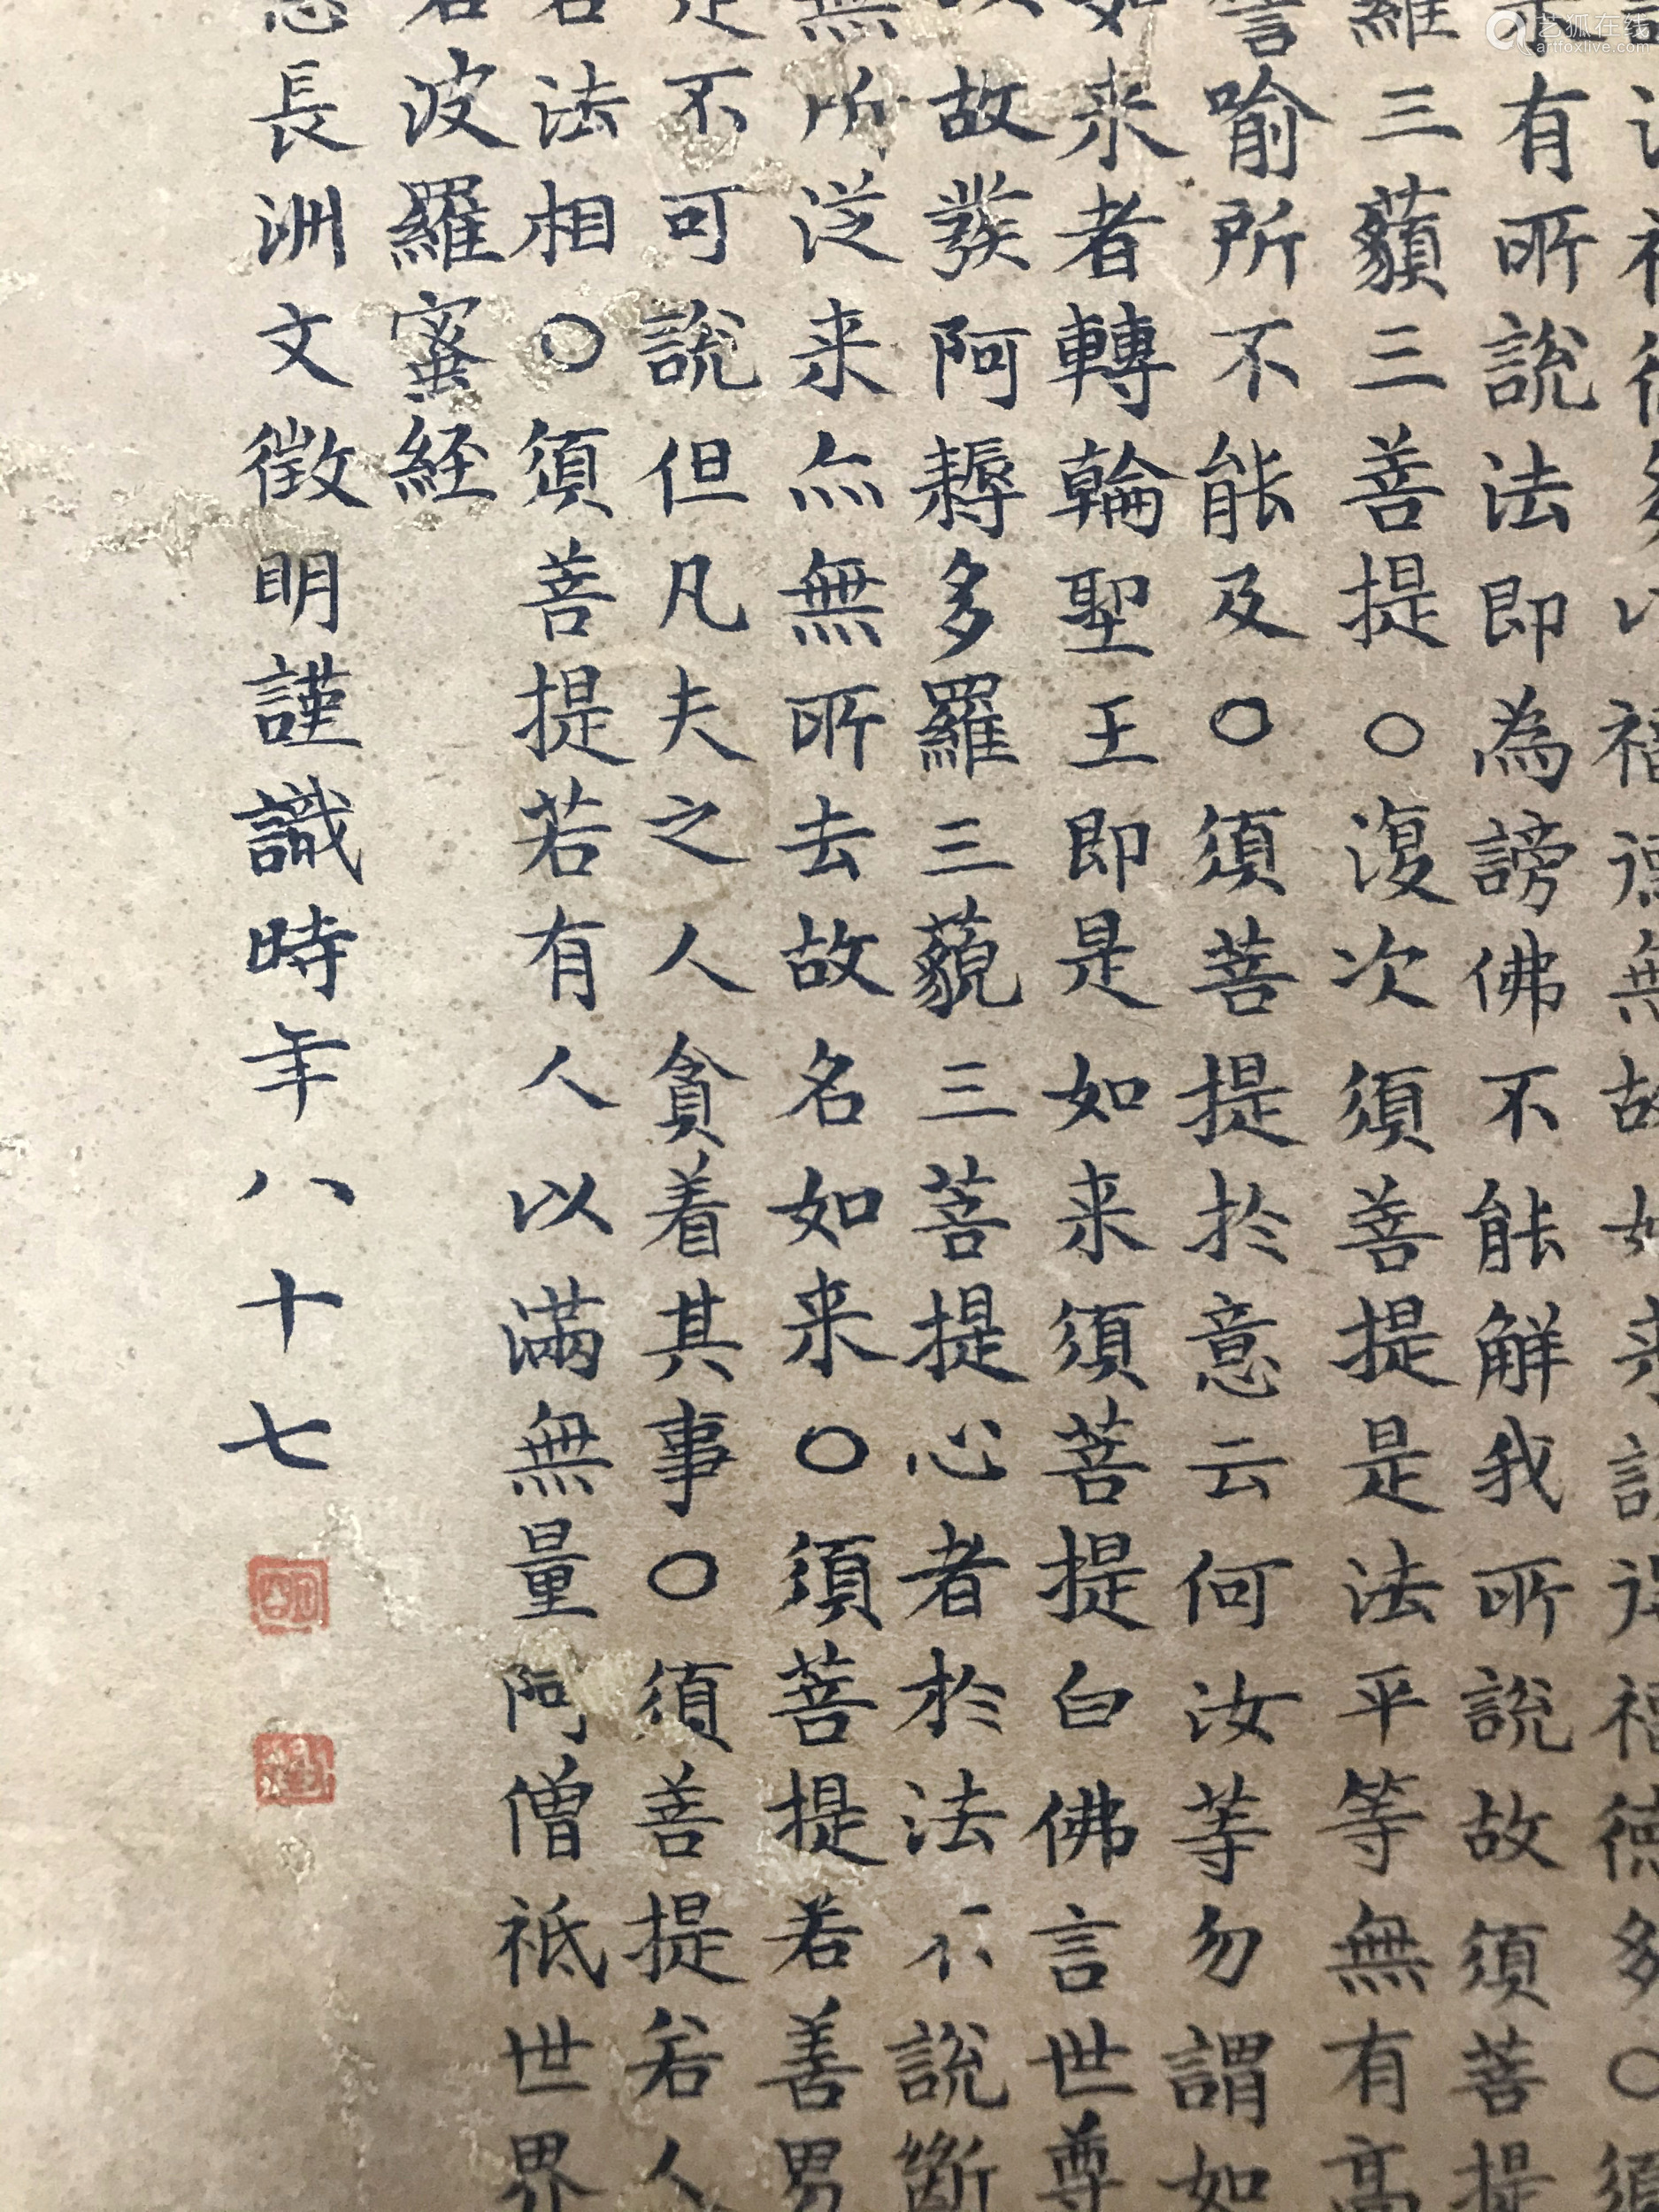 福德無故如来說得福德多〇須
有所說法即為謗佛不能解我所說故須菩提
羅三藐三菩提〇復次須菩提是法平等無有高
喻所不能及〇須菩提於意云何汝等勿謂如
如来者轉輪聖王即是如来須菩提白佛言世尊
故發阿耨多羅三藐三菩提心者於法不說斷
無所從来亦無所去故名如来〇須菩提若善男
是不可說但凡夫之人貪着其事〇須菩提若人
法相〇須菩提若有人以滿無量阿僧祇世界
波羅蜜經
長洲文徵明謹識時年八十七
艺狐在线
artfoxlive.com